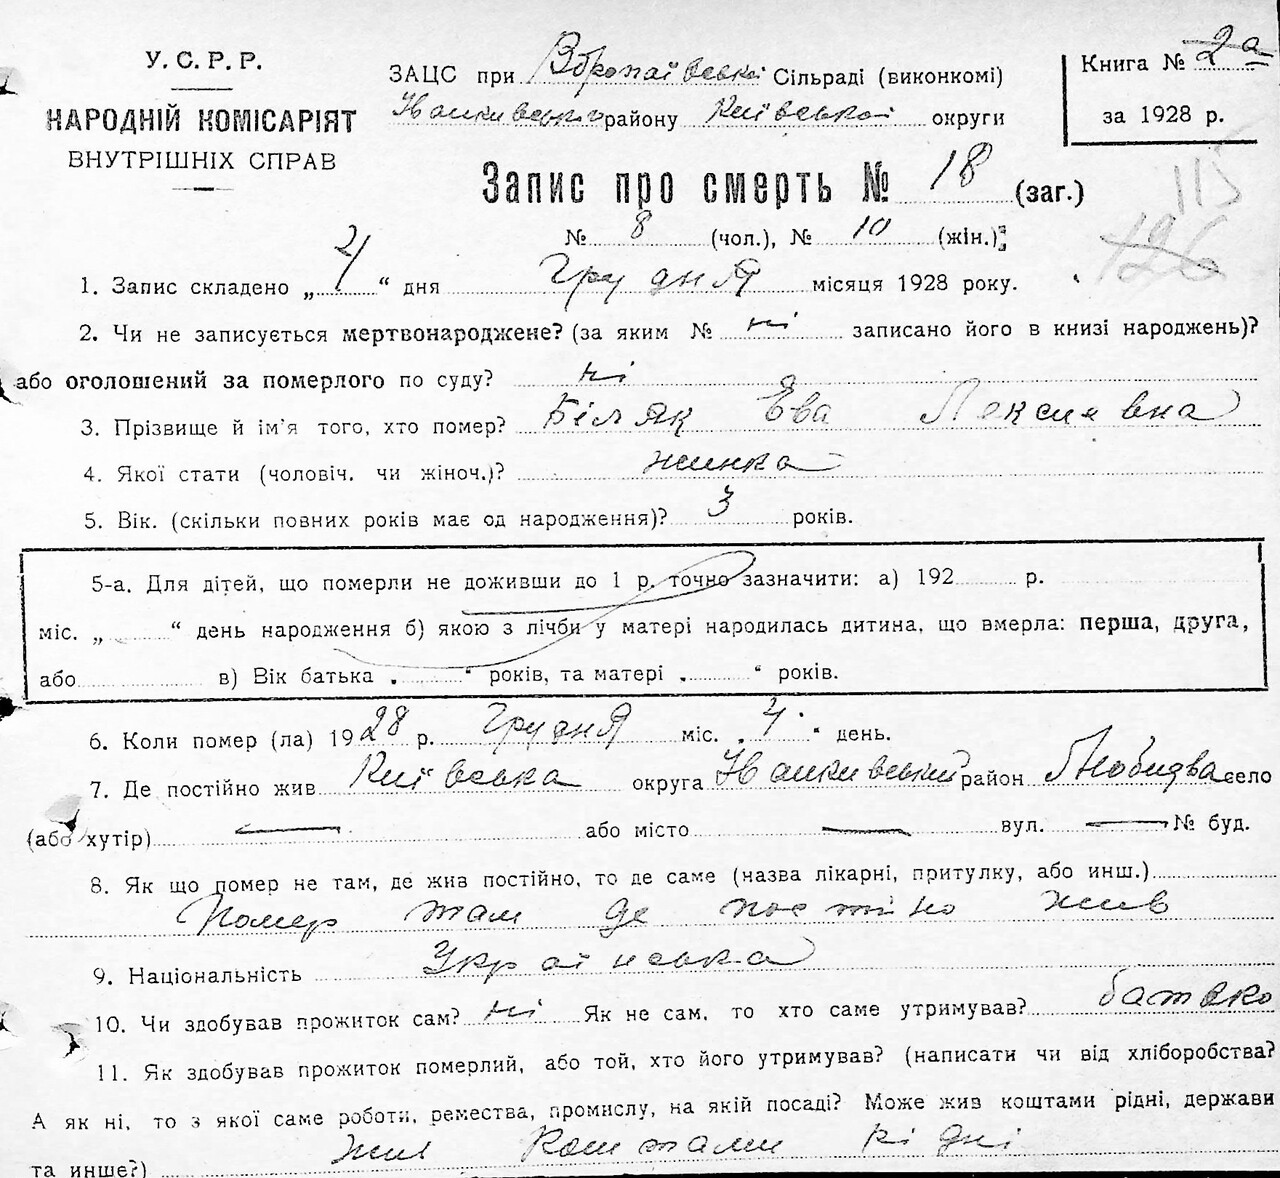 У.С.Р.Р.
НАРОДНІЙ КОМІСАРІЯТ
ВНУТРІШНІХ СПРАВ
ЗАЦС при Сільраді (виконкомі)
Іванкивського району Київської округи
Книга № 2а
за 1928 р.
Запис про смерть № 18 (заг.)
115
126
№ 8 (чол.), № 10 (жін.)
1. Запис складено „ 4 “ дня грудня місяця 1928 року.
2. Чи не записується мертвонароджене? (за яким № ні записано його в книзі народжень)?
або оголошений за померлого по суду? ні
3. Прізвище й ім'я того, хто помер? Біляк Ева Лексиевна
4. Якої стати (чоловіч. чи жіноч.)? жинка
5. Вік. (скільки повних років має од народження)? 3 років.
5-а. Для дітей, що померли не доживши до 1 р. точно зазначити: а) 192 р.
міс. „ “ день народження б) якою з лічби у матері народилась дитина, що вмерла: перша, друга,
або в) Вік батька „ “ років, та матері „ “ років.
6. Коли помер (ла) 1928 р. грудня міс. „ 4 “ день.
7. Де постійно жив Київська округа Іванкивський район село
(або хутір) — або місто — вул. — № буд.
8. Як що помер не там, де жив постійно, то де саме (назва лікарні, притулку, або инш.)
Помер там де постіно жив
9. Національність Українська
10. Чи здобував прожиток сам? ні Як не сам, то хто саме утримував? батько
11. Як здобував прожиток померлий, або той, хто його утримував? (написати чи від хліборобства?
А як ні, то з якої саме роботи, ремества, промислу, на якій посаді? Може жив коштами рідні, держави
та инше?) жив коштами рідні